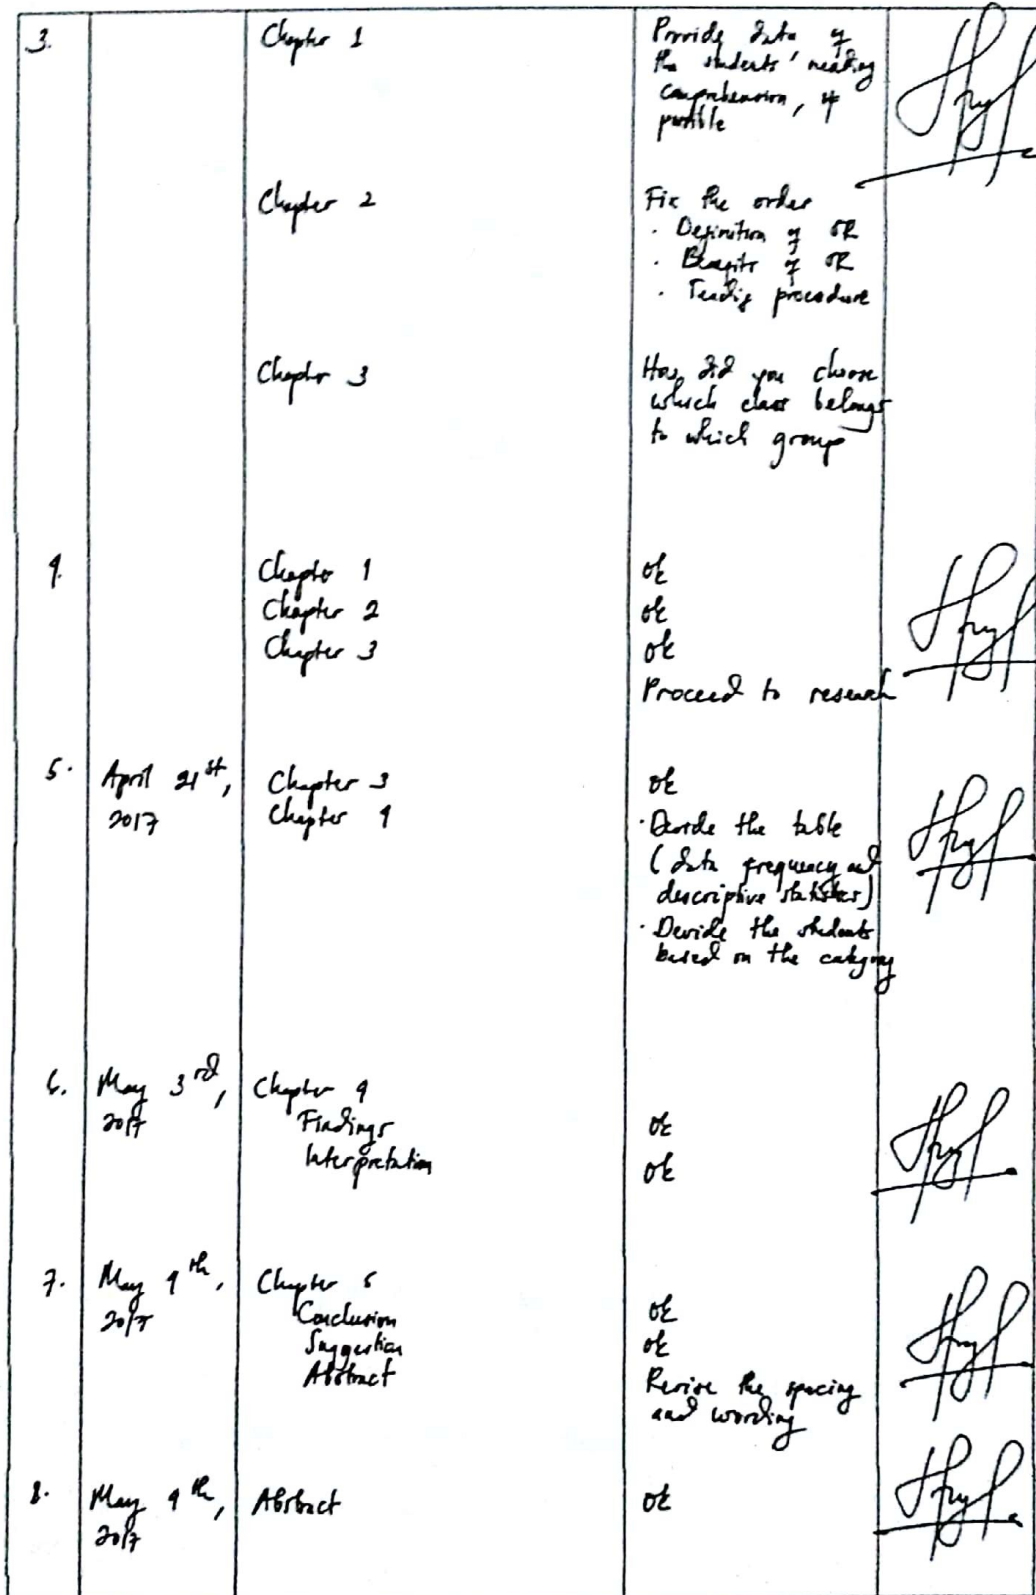 3.
Chapter 1
Provide data of
the students' reading
comprehension, if
possible
Chapter 2
Fix the order
· Definition of OR
· Benefits of OR
· procedure
Chapter 3
How did you choose
which class belongs
to which group
4.
Chapter 1
ok
Chapter 2
ok
Chapter 3
ok
Proceed to research
5.
April 21st,
2017
Chapter 3
ok
Chapter 4
· Devide the table
(data frequency and
descriptive statistics)
· Devide the students
based on the category
6.
May 3rd,
2017
Chapter 4
Findings
ok
Interpretation
ok
7.
May 4th,
2017
Chapter 5
Conclusion
ok
Suggestion
ok
Abstract
Revise the spacing
and wording
8.
May 9th,
2017
Abstract
ok